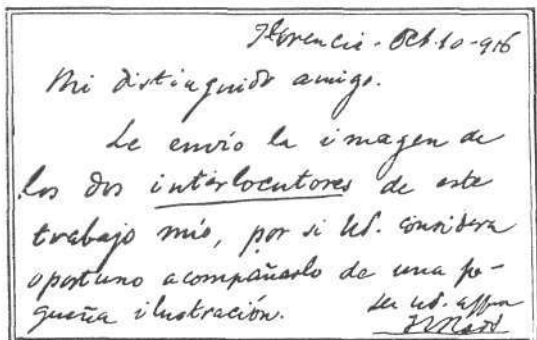 Florencia - Oct. 10 - 916
Mi distinguido amigo.
Le envío la imagen de
los dos interlocutores de este
trabajo mío, por si Ud. considera
oportuno acompañarlo de una pe-
queña ilustración.
Ud.